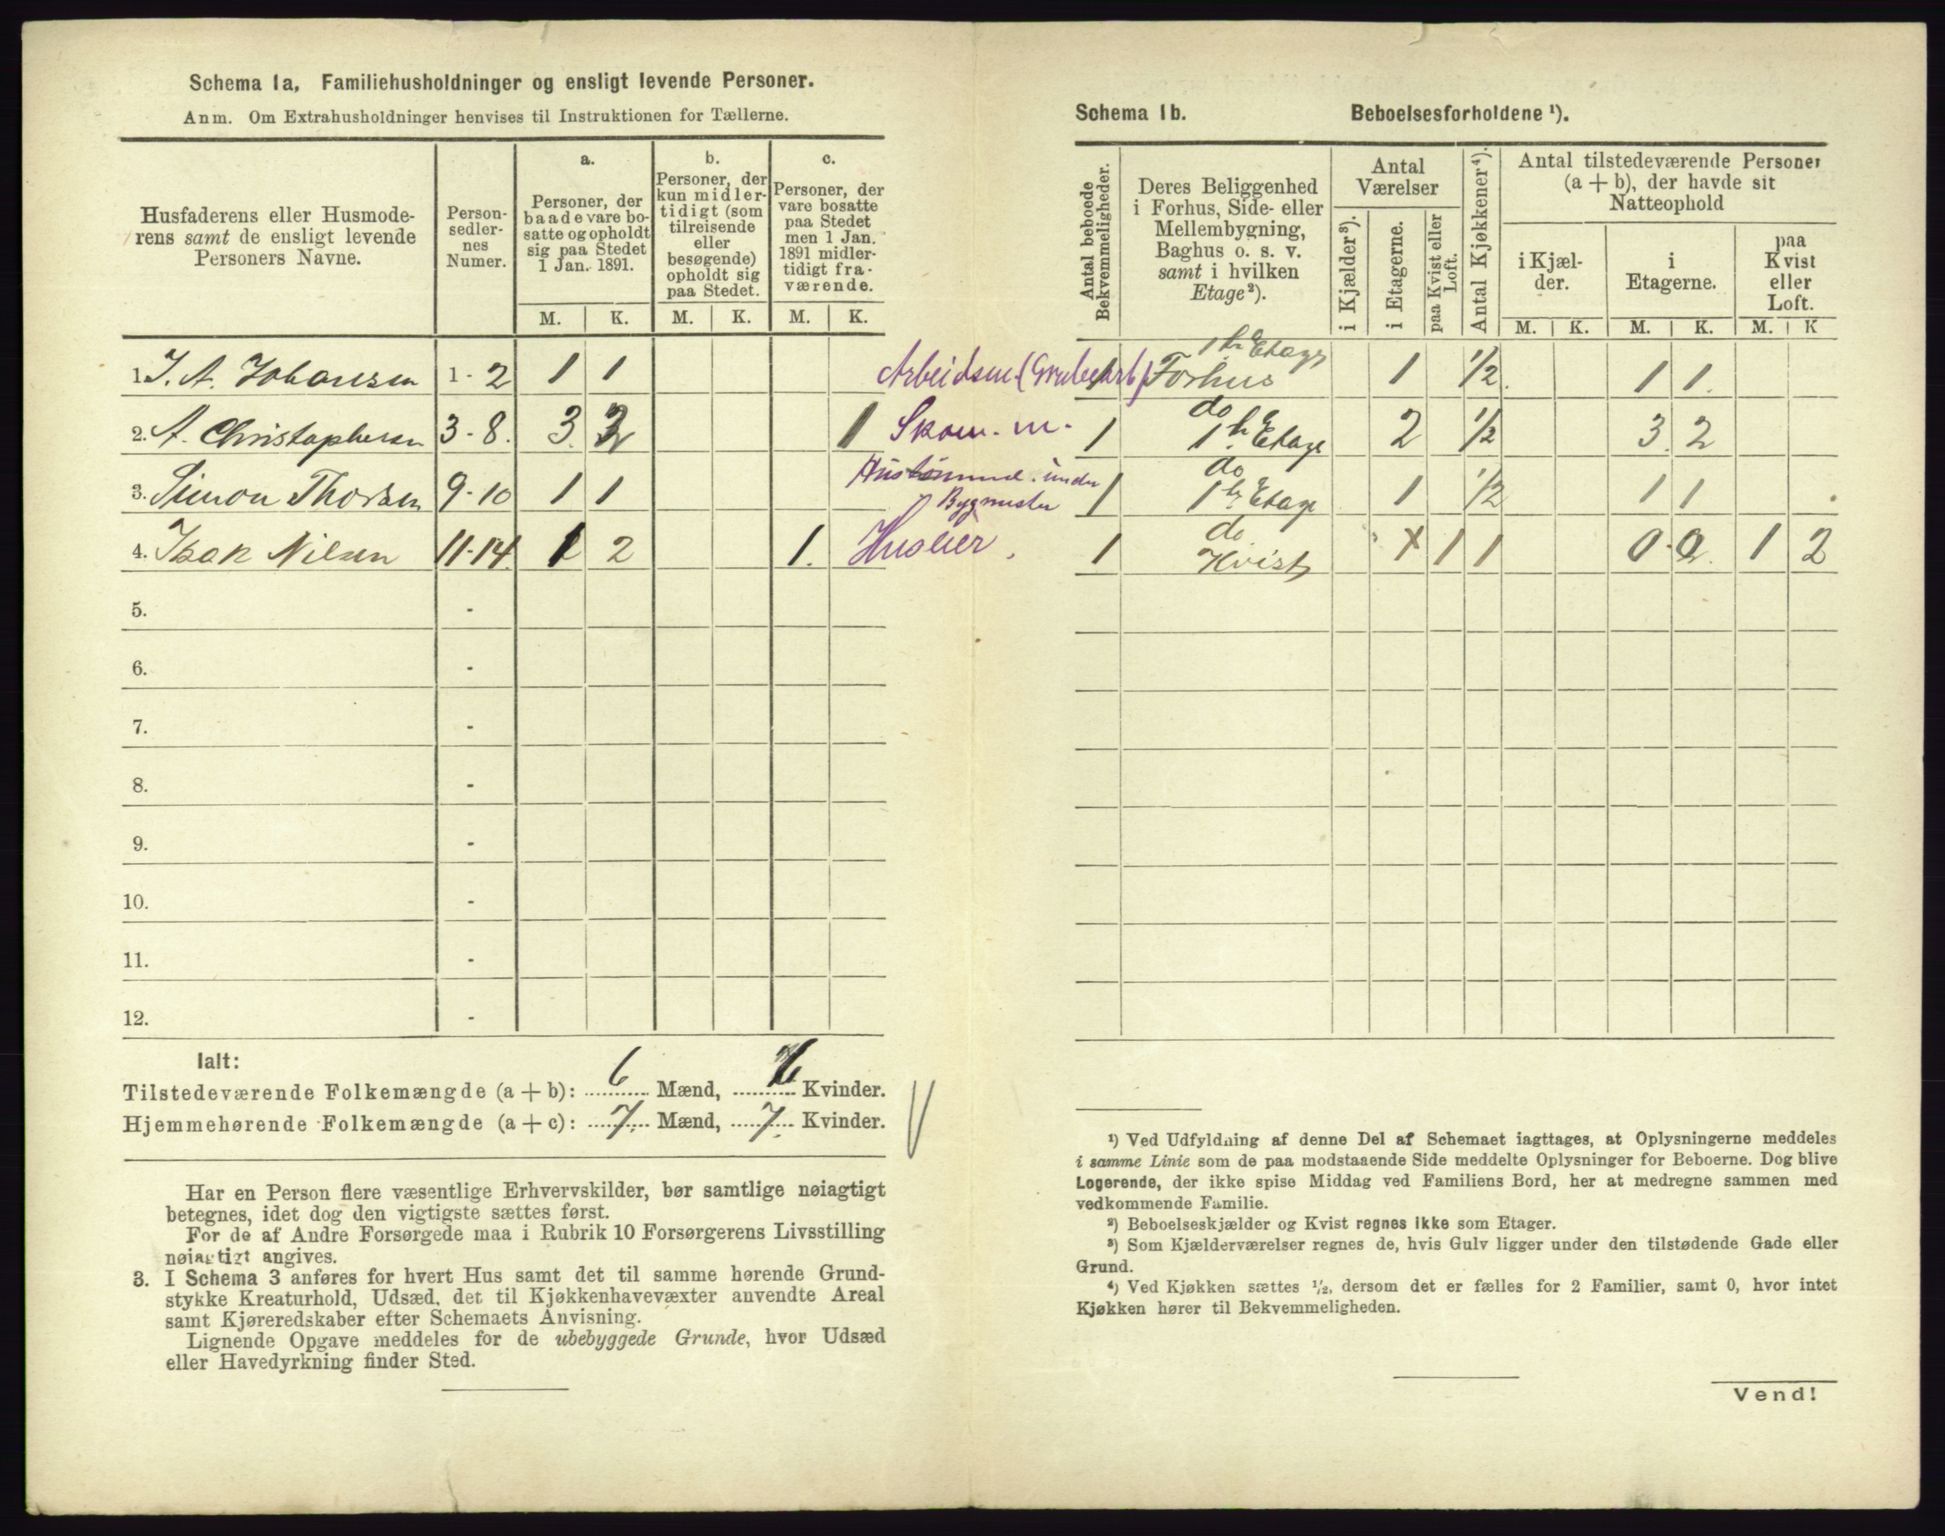 Schema 1a, Familiehusholdninger og ensligt levende Personer.
Anm. Om Extrahusholdninger henvises til Instruktionen for Tællerne.
Husfaderens eller Husmode-
rens samt de ensligt levende
Personers Navne.
Person-
sedler-
nes
Numer.
a.
Personer, der
baade vare bo-
satte og opholdt
sig paa Stedet
1 Jan. 1891.
b.
Personer, der
kun midler-
tidigt (som
tilreisende
eller
besøgende)
opholdt sig
paa Stedet.
c.
Personer, der
vare bosatte
paa Stedet
men 1 Jan.
1891 midler-
tidigt fra-
værende.
M. K. M. K. M. K.
1. J. A. Johansen 1 - 2 1 1
2. A. Christophersen 3 - 8. 3. 2 1
3. Simon Thorsen 9 - 10 1 1
4. Isak Nilsen 11 - 14 1 2 1.
5. -
6. -
7. -
8. -
9. -
10. -
11. -
12. -
Ialt:
Tilstedeværende Folkemængde (a + b): 6 Mænd, 6 Kvinder.
Hjemmehørende Folkemængde (a + c): 7. Mænd, 7. Kvinder.
Har en Person flere væsentlige Erhvervskilder, bør samtlige nøiagtigt
betegnes, idet dog den vigtigste sættes først.
For de af Andre Forsørgede maa i Rubrik 10 Forsørgerens Livsstilling
nøiagtigt angives.
3. I Schema 3 anføres for hvert Hus samt det til samme hørende Grund-
stykke Kreaturhold, Udsæd, det til Kjøkkenhavevæxter anvendte Areal
samt Kjøreredskaber efter Schemaets Anvisning.
Lignende Opgave meddeles for de ubebyggede Grunde, hvor Udsæd
eller Havedyrkning finder Sted.
Schema 1b. Beboelsesforholdene ¹).
Antal beboede
Bekvemmeligheder.
Deres Beliggenhed
i Forhus, Side- eller
Mellembygning,
Baghus o. s. v.
samt i hvilken
Etage²).
Antal
Værelser
i Kjælder³).
i Etagerne.
paa Kvist eller
Loft.
Antal Kjøkkener⁴).
Antal tilstedeværende Personer
(a + b), der havde sit
Natteophold
i Kjæl-
der.
i
Etagerne.
paa
Kvist
eller
Loft.
M. K. M. K. M. K
1ste Etage
Arbeidsm (Grubearb) 1 Forhus 1 1/2 1 1.
do
Skom. m. 1 1. Etage 2 1/2 3 2
do
under
Bygmester 1 1 Etage 1 1/2 1 1
do
Huseier. 1 Kvist 1 1 0 0 1 2
¹) Ved Udfyldning af denne Del af Schemaet iagttages, at Oplysningerne meddeles
i samme Linie som de paa modstaaende Side meddelte Oplysninger for Beboerne. Dog blive
Logerende, der ikke spise Middag ved Familiens Bord, her at medregne sammen med
vedkommende Familie.
²) Beboelseskjælder og Kvist regnes ikke som Etager.
³) Som Kjælderværelser regnes de, hvis Gulv ligger under den tilstødende Gade eller
Grund.
⁴) Ved Kjøkken sættes ¹/₂, dersom det er fælles for 2 Familier, samt 0, hvor intet
Kjøkken hører til Bekvemmeligheden.
Vend!